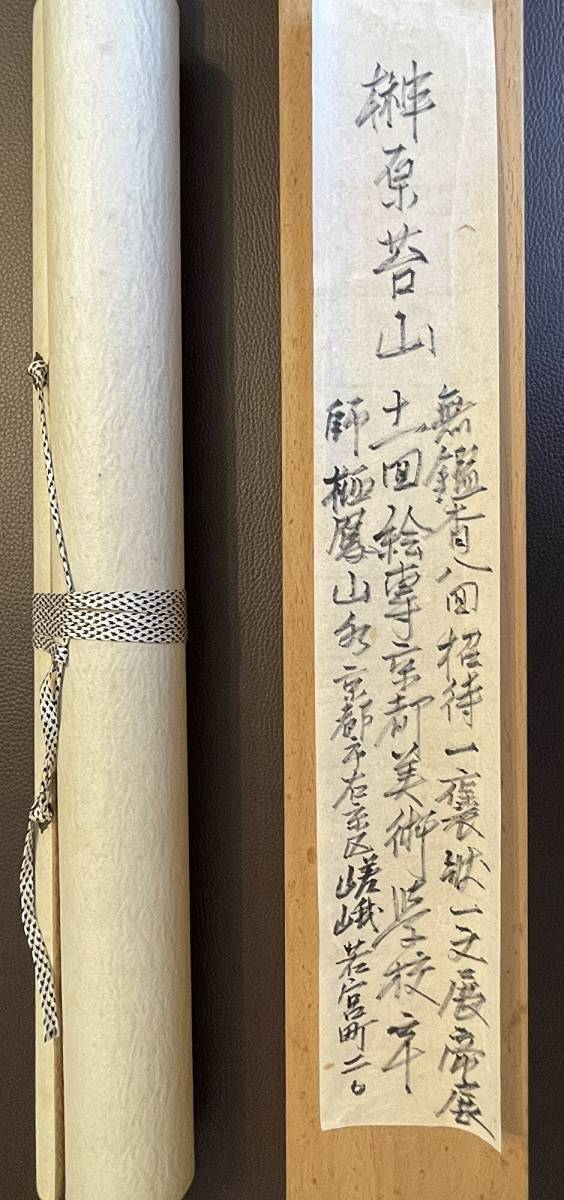 榊原苔山
無鑑査八回招待一褒状一文展帝展
十一回絵専京都美術学校卒
師栖鳳山水京都市右京区嵯峨若宮町二〇